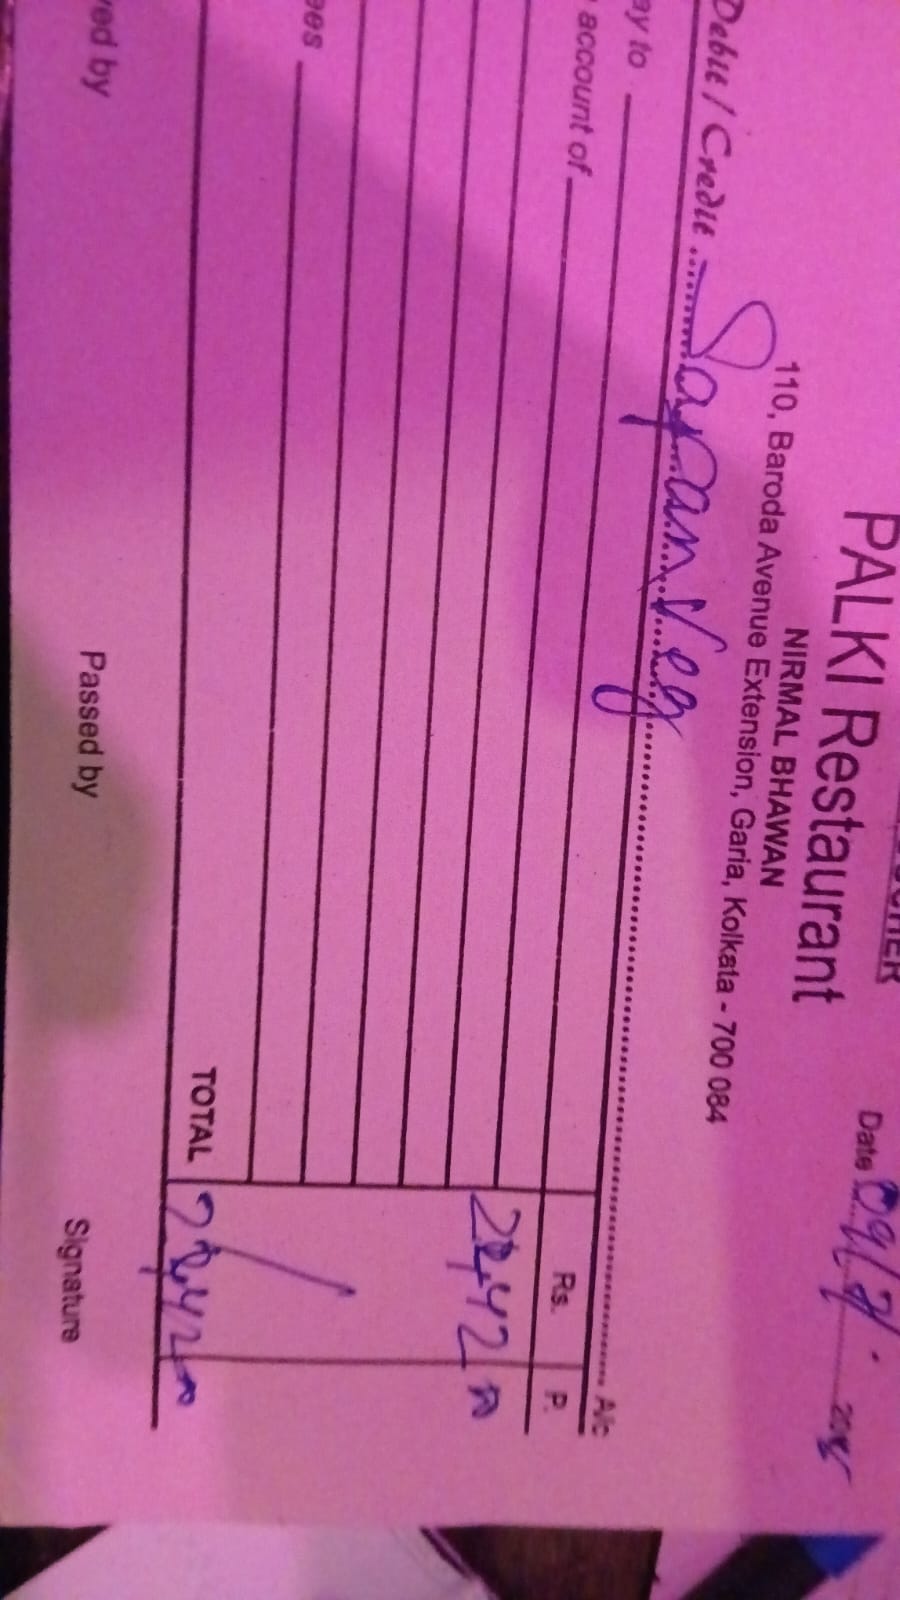 PALKI Restaurant
NIRMAL BHAWAN
110, Baroda Avenue Extension, Garia, Kolkata - 700 084
Date 09/7/
Debit / Credit Sapan Veg A/c
ay to
account of
Rs. P.
ees
TOTAL
ved by Passed by Signature